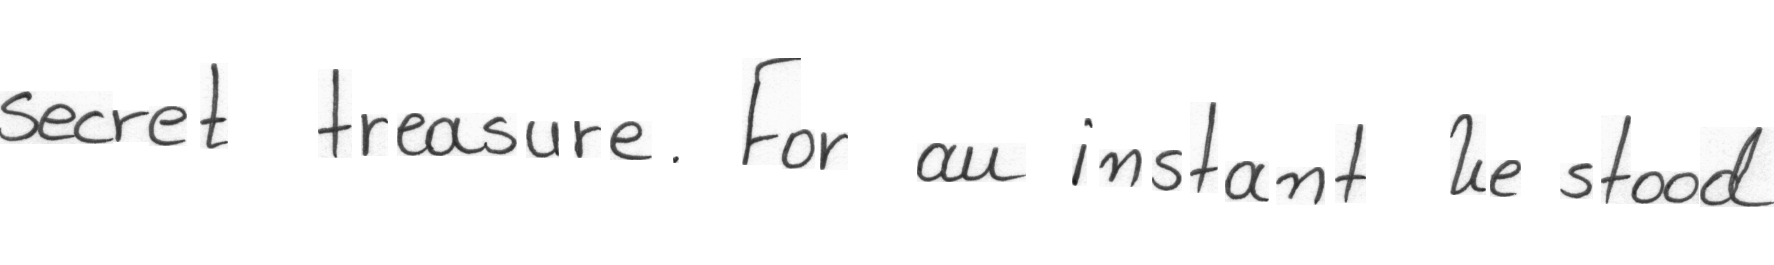 secret treasure. For an instant he stood